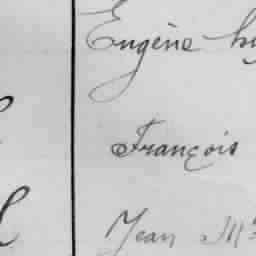 Eugène
François
Jean M